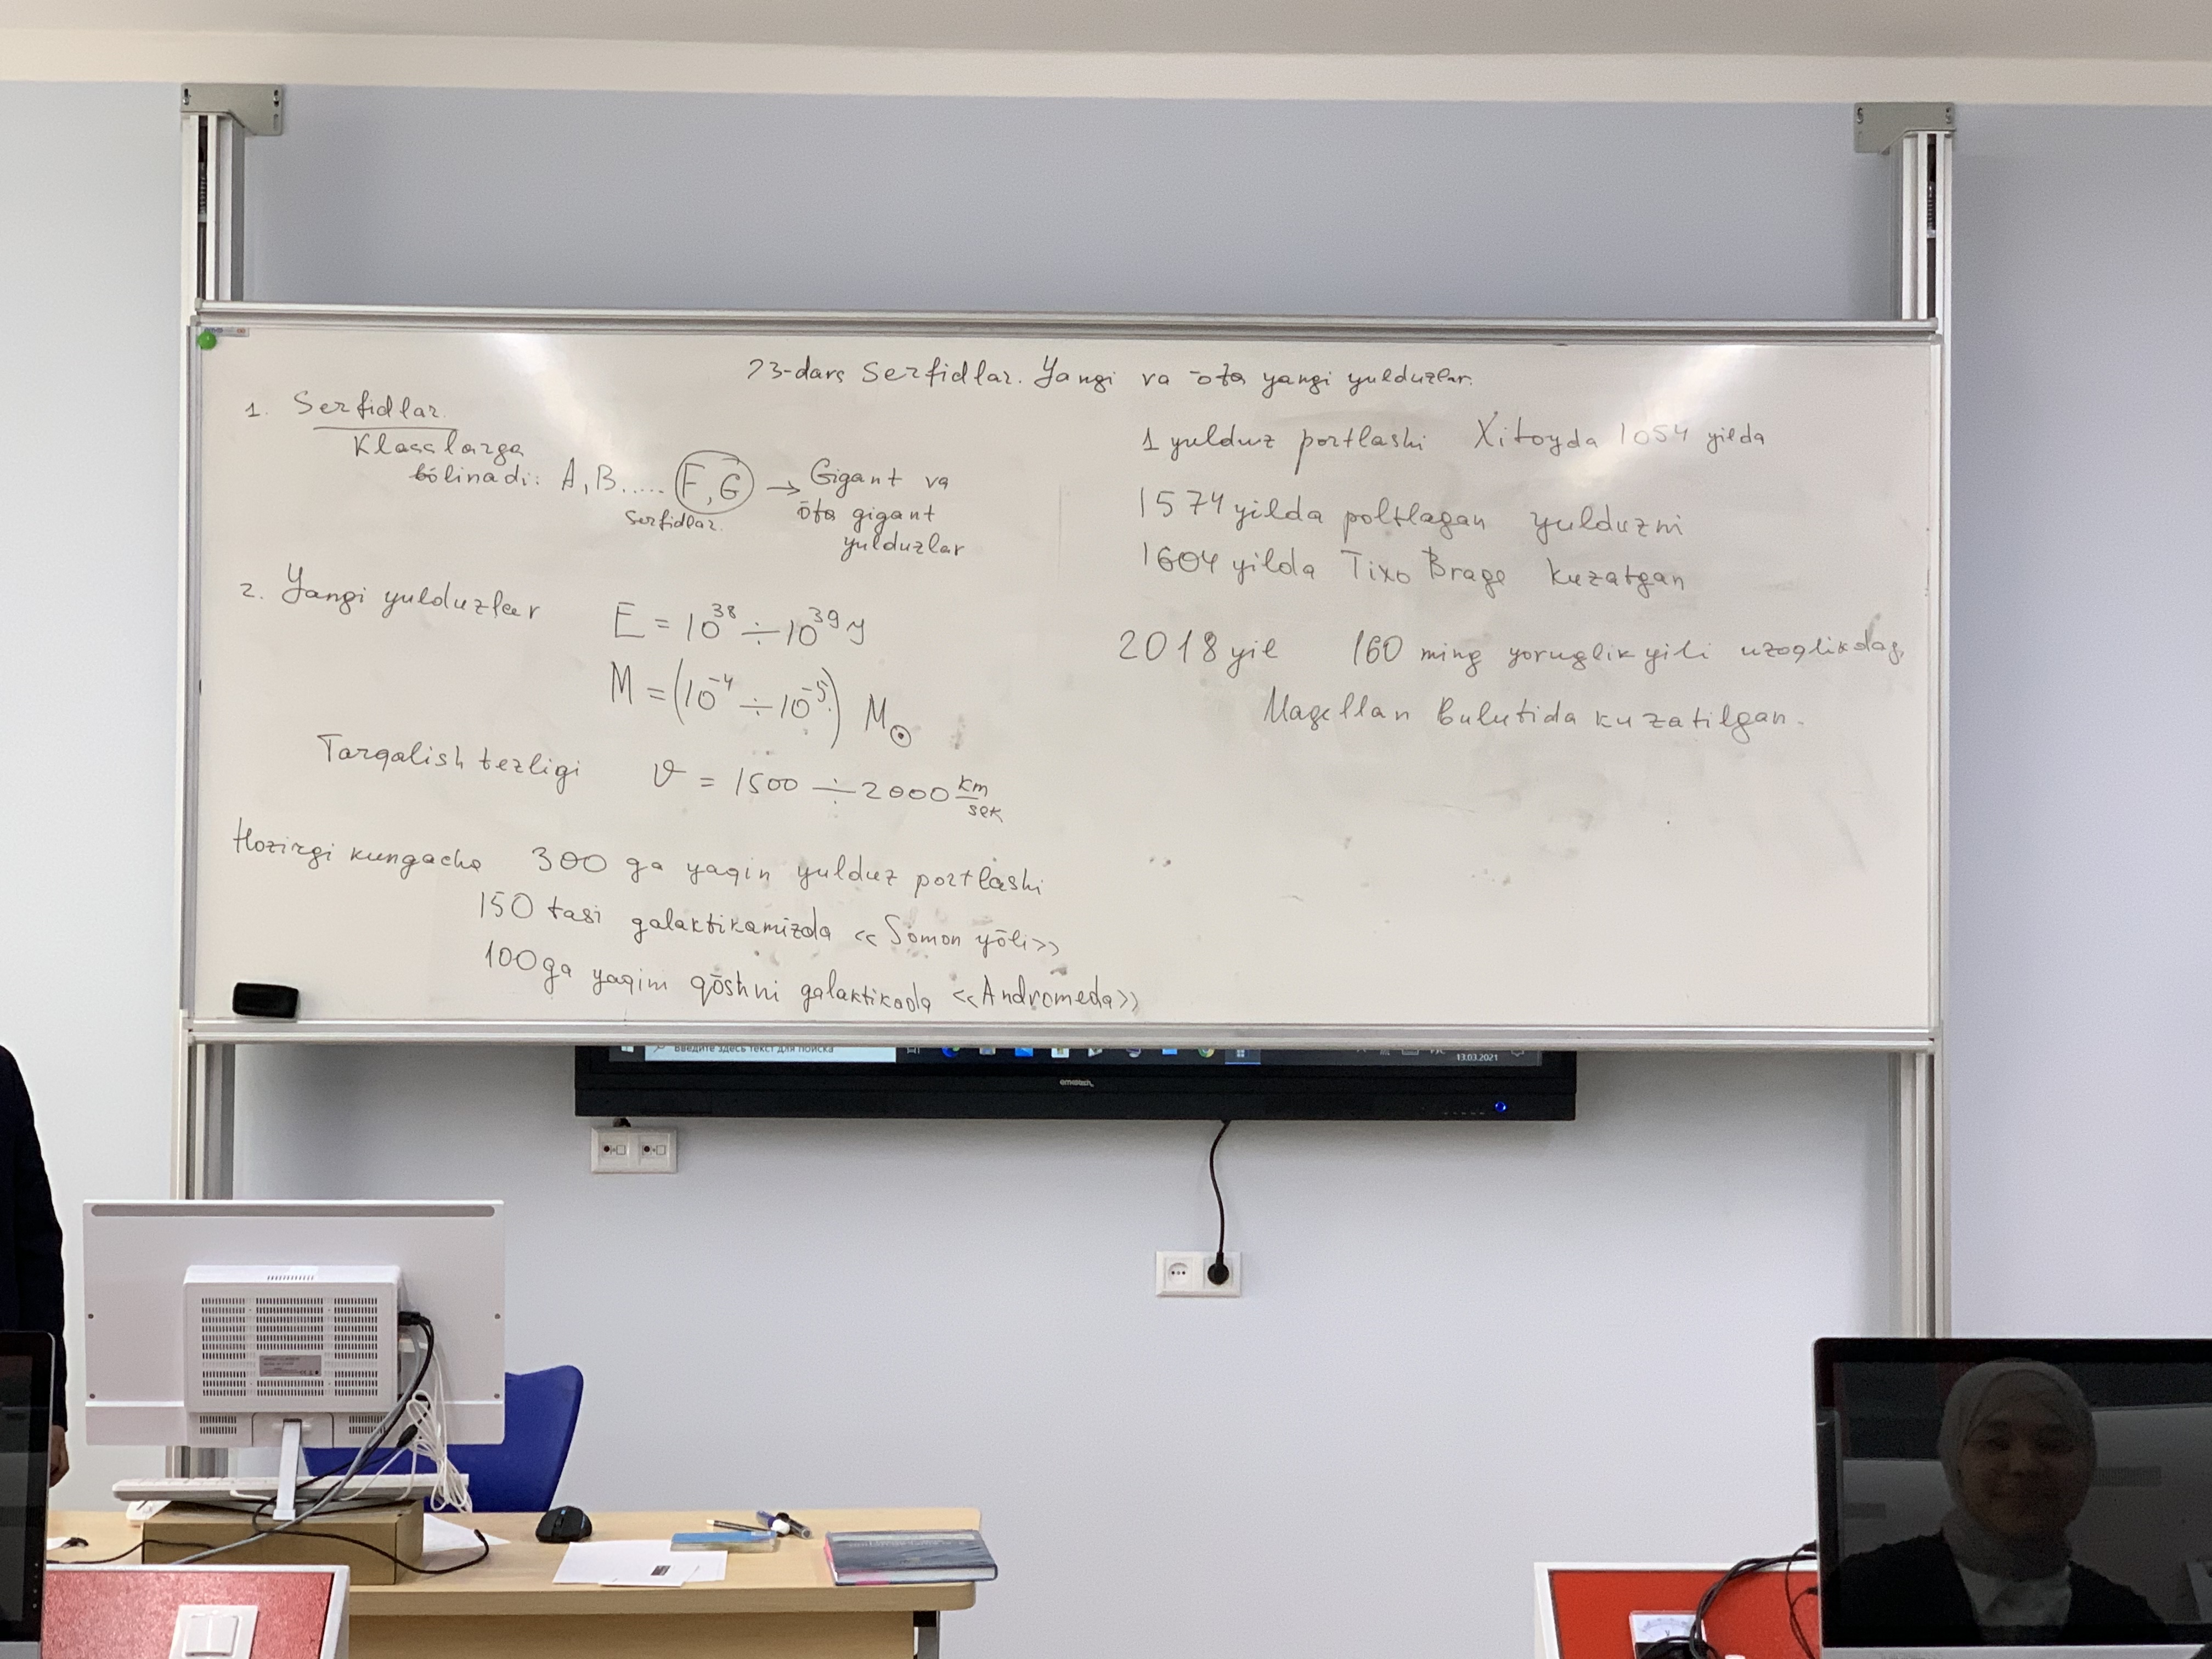 23-dars Serfidlar. Yangi va ōta yangi yulduzlar.
1. Serfidlar.
Klasslarga
bōlinadi: A, B..... F, G → Gigant va
serfidlar. ōta gigant
yulduzlar
2. Yangi yulduzlar
E = 10³⁸ ÷ 10³⁹ y
M = (10⁻⁴ ÷ 10⁻⁵) M☉
Tarqalish tezligi ϑ = 1500 ÷ 2000 km/sek
Hozirgi kungacha 300 ga yaqin yulduz portlashi
150 tasi galaktikamizda «Somon yōli»
100 ga yaqim qōshni galaktikada «Andromeda»
1 yulduz portlashi Xitoyda 1054 yilda
1574 yilda poltlagan yulduzni
1604 yilda Tixo Brage kuzatgan
2018 yil 160 ming yoruglik yili uzoqlikdag
Magellan Bulutida kuzatilgan.
Введите здесь текст для поиска
13.03.2021